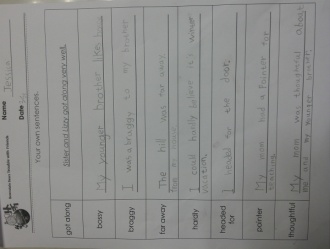 Name Jessica
Date
Your own sentences.
got along
Sister and Lizzy got along very well.
bossy
My younger brother likes
braggy
I was braggy to my brother
far away
The hill was far away
from
hardly
I could hardly believe it's winter
vacation.
headed
for
I headed for the door.
pointer
My mom had a pointer for
teaching
thoughtful
My mom was thoughtful about
me and my younger brother.